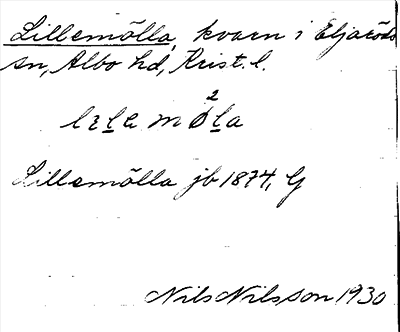 Lillemölla, kvarn i Eljaröds
sn, Albo hd, Krist. l.
lɛl̲a mø²l̲a
Lillemölla jb 1874, G
Nils Nilsson 1930